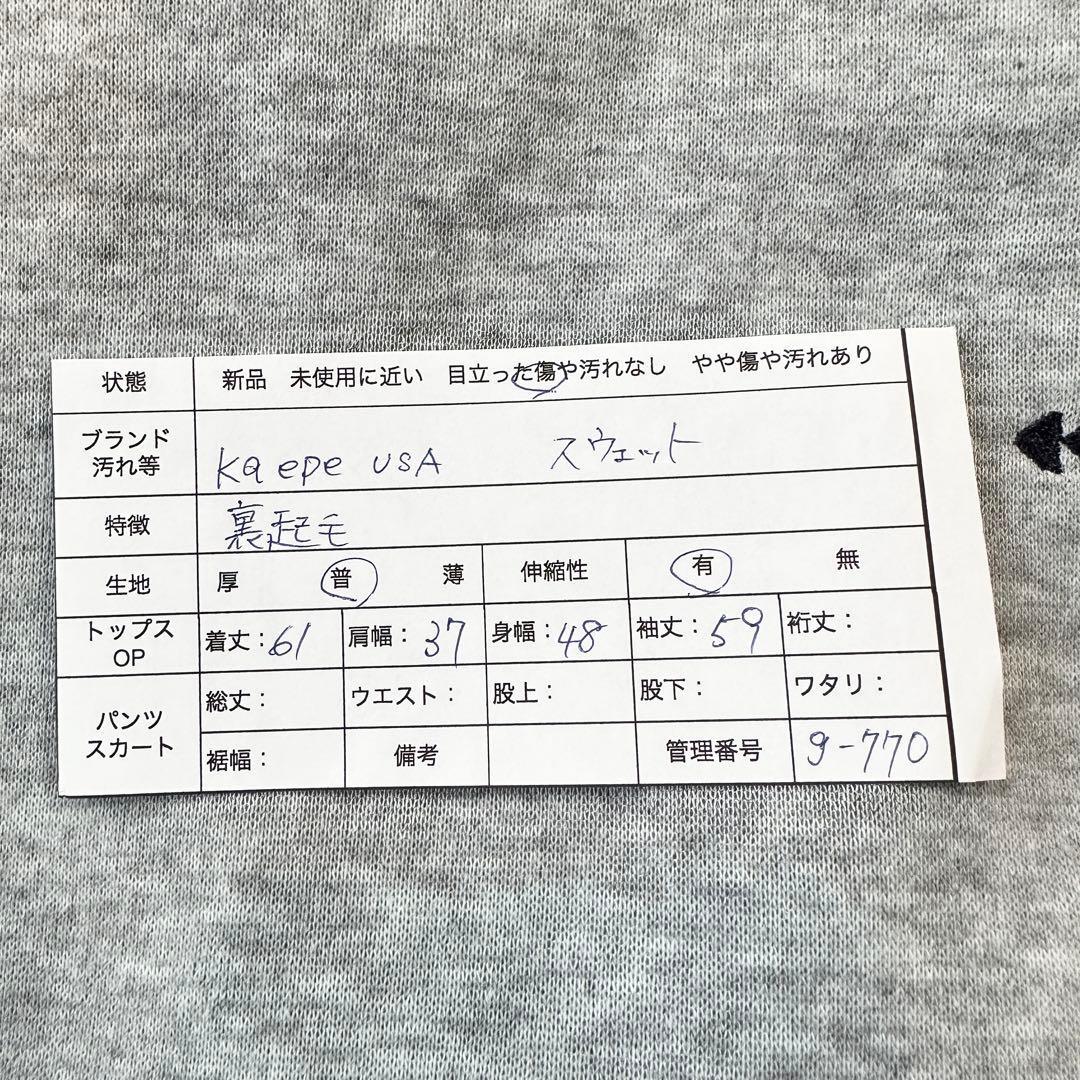 状態 新品 未使用に近い 目立った傷や汚れなし やや傷や汚れあり
ブランド
汚れ等 Kaepe USA スウェット
特徴 裏起毛
生地 厚 普 薄 伸縮性 有 無
トップス
OP 着丈:61 肩幅:37 身幅:48 袖丈:59 裄丈:
パンツ
スカート 総丈: ウエスト: 股上: 股下: ワタリ:
裾幅: 備考 管理番号 g-770